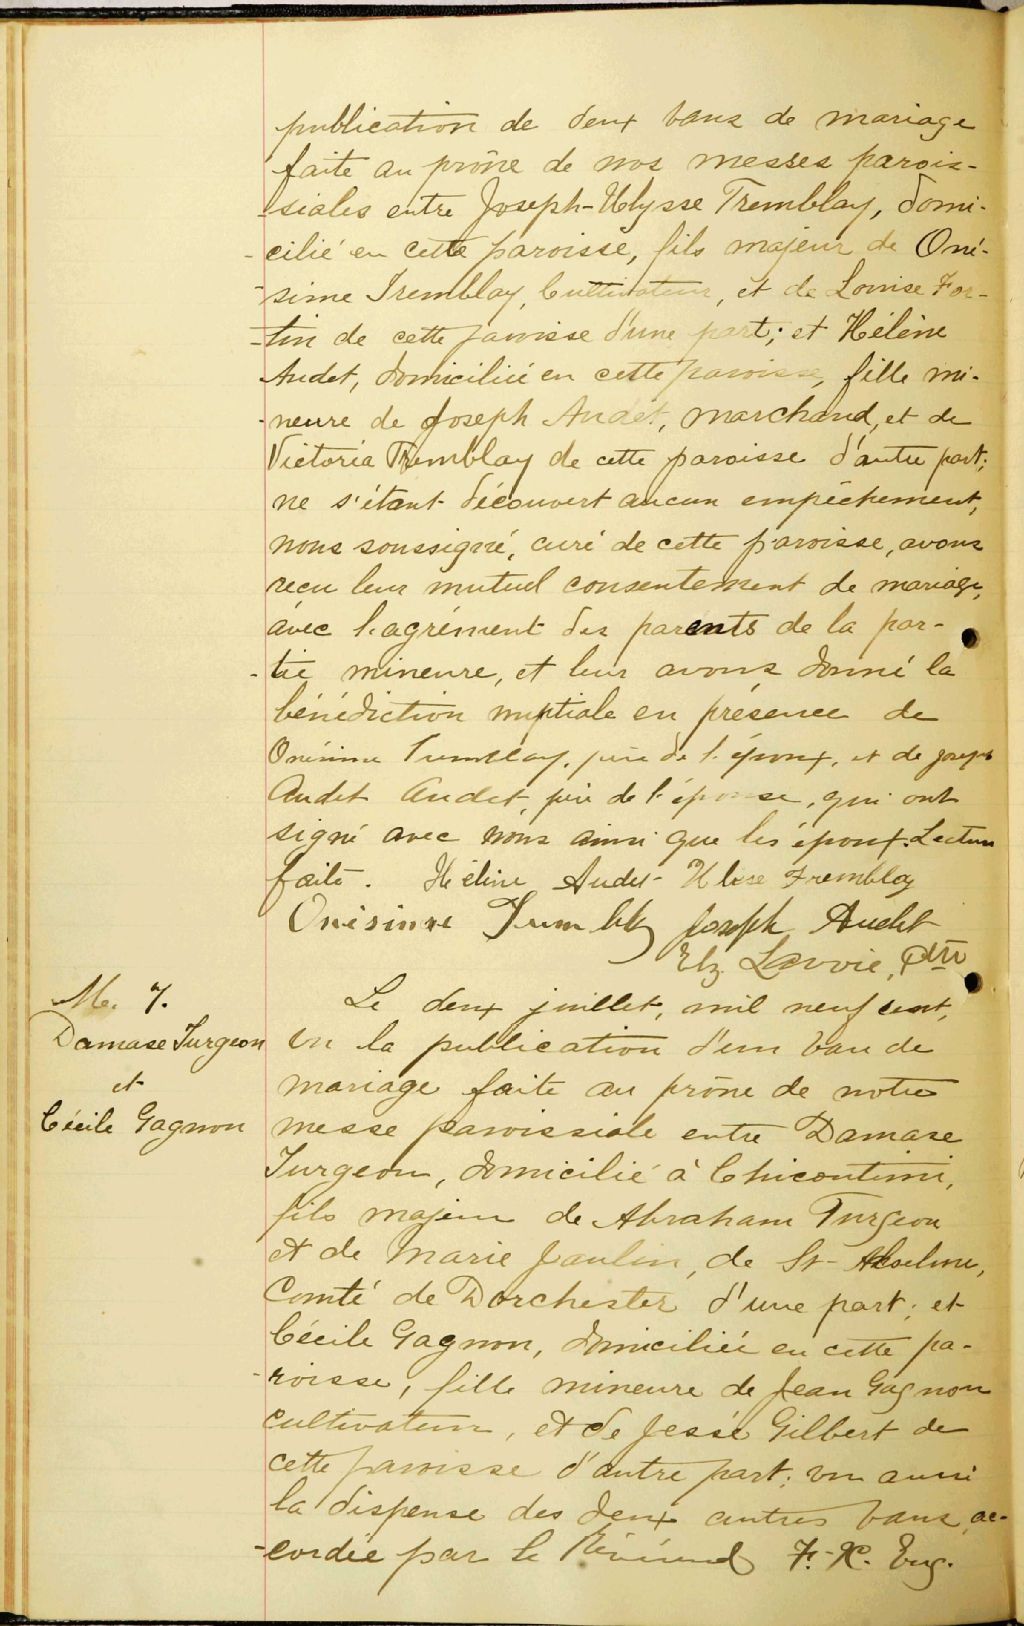 publication de deux bans de mariage
faite au prône de nos messes parois-
-siales entre Joseph-Ulysse Tremblay, domi-
-cilié en cette paroisse, fils majeur de Oné-
-sime Tremblay, Cultivateur, et de Louise For-
-tin de cette paroisse d'une part; et Hélène
Audet, domiciliée en cette paroisse, fille mi-
-neure de Joseph Audet, marchand, et de
Victoria Tremblay de cette paroisse d'autre part;
ne s'étant découvert aucun empêchement,
nous soussigné, curé de cette paroisse, avons
reçu leur mutuel consentement de mariage,
avec l'agrément des parents de la par-
-tie mineure, et leur avons donné la
bénédiction nuptiale en présence de
Onésime Tremblay, père de l'époux, et de Joseph
Audet Audet, père de l'épouse, qui ont
signé avec nous ainsi que les époux. Lecture
faite. Hélène Audet Ulise Tremblay
Onésime Tremblay Joseph Audet
Elz. Lavoie, Ptre
M. 7.
Damase Turgeon
et
Cécile Gagnon
Le deux juillet, mil neuf cent,
vu la publication d'un ban de
mariage faite au prône de notre
messe paroissiale entre Damase
Turgeon, domicilié à Chicoutimi,
fils majeur de Abraham Turgeon
et de Marie Paulin, de St-Anselme,
Comté de Dorchester d'une part; et
Cécile Gagnon, domiciliée en cette pa-
-roisse, fille mineure de Jean Gagnon
cultivateur, et de Jessé Gilbert de
cette paroisse d'autre part; vu aussi
la dispense des deux autres bans ac-
-cordée par le Révérend F.-X. Eug.